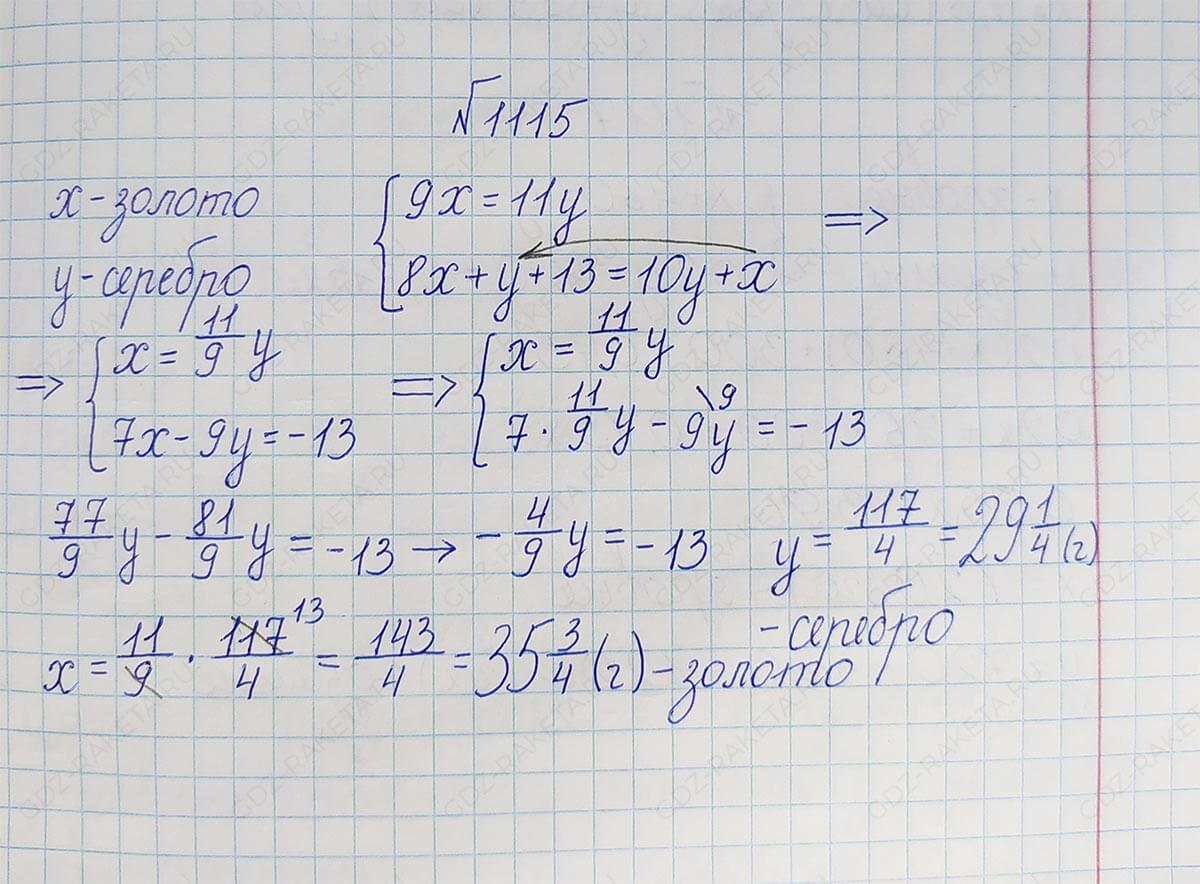 №1115
x - золото
y - серебро
{ 9x = 11y
8x + y + 13 = 10y + x =>
=> { x = 11/9 y
7x - 9y = -13
=> { x = 11/9 y
7 · 11/9 y - 9y \9 = -13
77/9 y - 81/9 y = -13 → - 4/9 y = -13 y = 117/4 = 29 1/4 (г)
- серебро
x = 11/9 · 117/4 13 = 143/4 = 35 3/4 (г) - золото
GDZ-RAKETA.RU